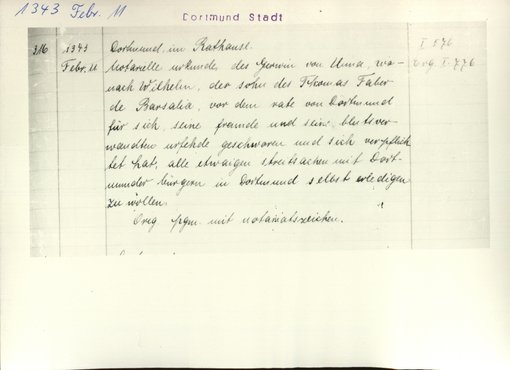 1343 Febr. 11
Dortmund Stadt
316 1343 Dortmund, im Rathause. I 576
Febr. 11 Notarielle urkunde des Gerwin von Unna, wo- vrg. I 776
nach Wilhelm, der sohn des Thomas Faber
de Barsalia, vor dem rate von Dortmund
für sich, seine freunde und seine blutsver-
wandten urfehde geschworen und sich verpflich
tet hat, alle etwaigen streitsachen mit Dort-
munder bürgern in Dortmund selbst erledigen
zu wollen.
Orig. pgm. mit notariatszeichen.